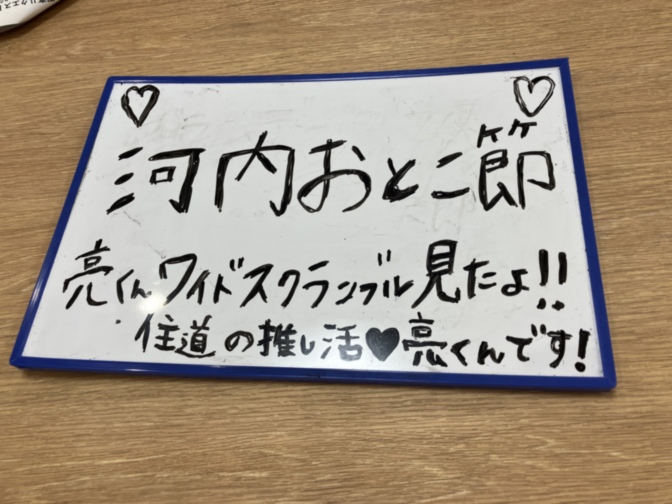 ♡ ♡
河内おとこ節
亮くんワイドスクランブル見たよ!!
住道の推し活♥亮くんです!